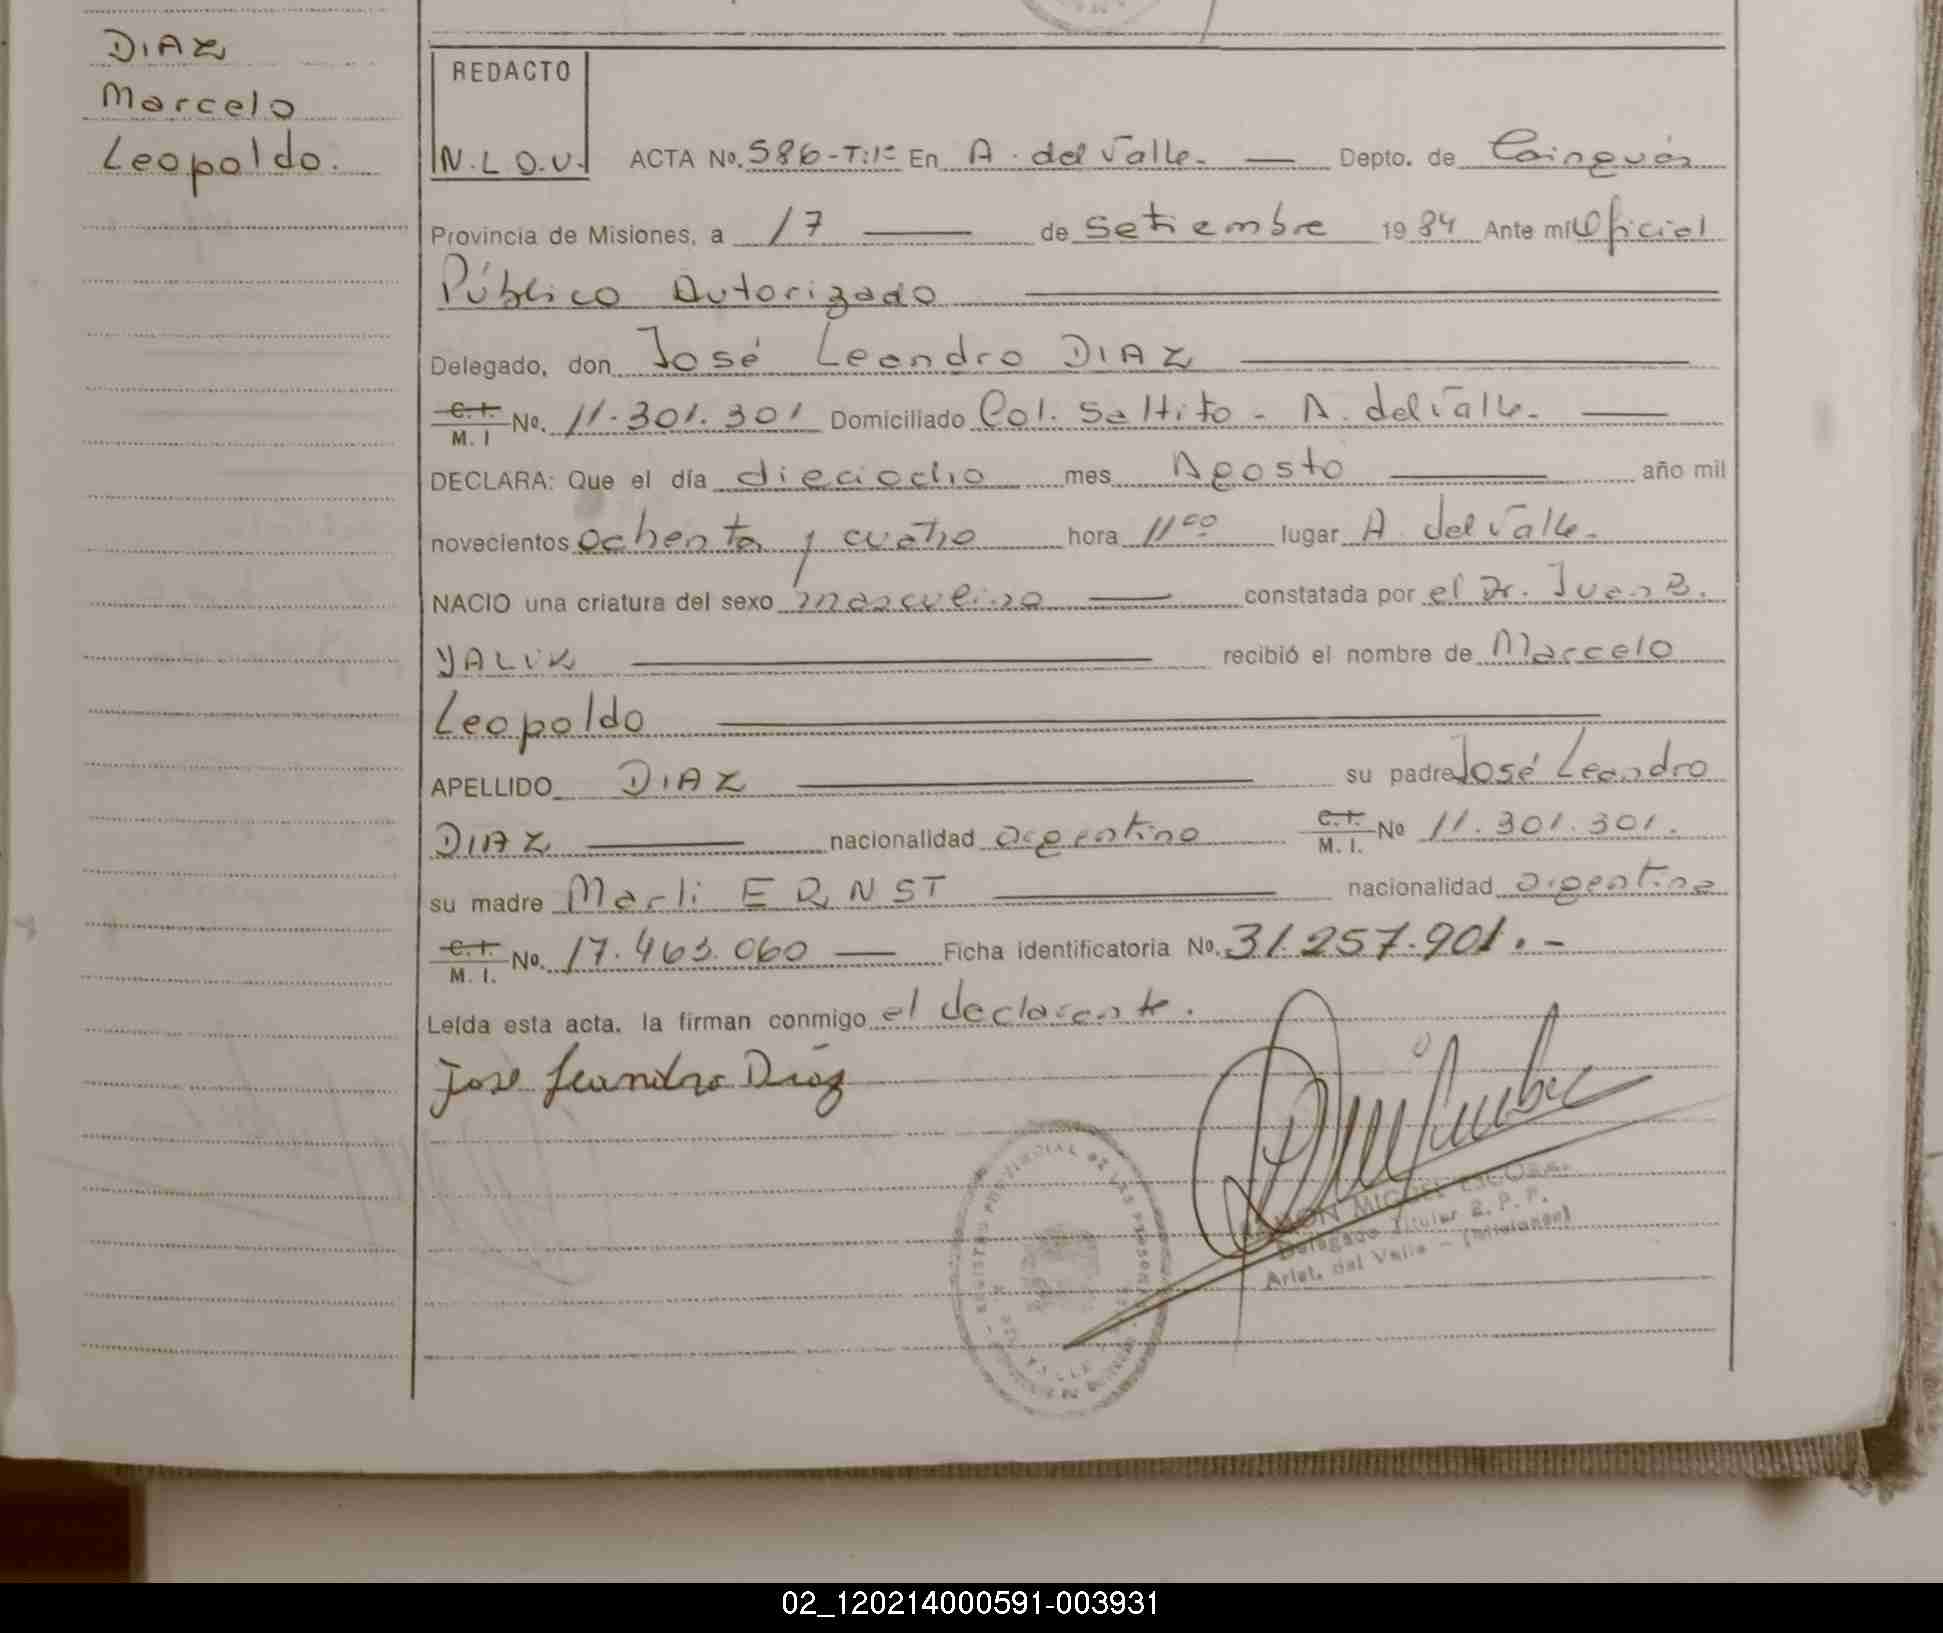 DIAZ
Marcelo
Leopoldo.
REDACTO
N.L.O.V.
ACTA No. 586-T:1º En A. del Valle. — Depto. de Cainguás
Provincia de Misiones, a 17 — de Setiembre 1984 Ante mi Oficial
Público Autorizado
Delegado, don José Leandro DIAZ
C.I. M. I No. 11.301.301 Domiciliado Col. Saltito - A. del Valle. —
DECLARA: Que el día dieciocho mes Agosto — año mil
novecientos ochenta y cuatro hora 11 00 lugar A. del Valle.
NACIO una criatura del sexo masculino — constatada por el Dr. Juan B.
YALUK — recibió el nombre de Marcelo
Leopoldo
APELLIDO DIAZ — su padre José Leandro
DIAZ — nacionalidad argentino C.I. M. I. No 11.301.301.
su madre Marli ERNST — nacionalidad argentina
C.I. M. I. No. 17.463.060 — Ficha identificatoria No. 31.257.901.-
Leída esta acta, la firman conmigo el declarante.
Jose Leandro Diaz
REGISTRO PROVINCIAL DE LAS PERSONAS
MIGUEL
Delegado Titular R. P. P.
Arist. del Valle - (Misiones)
02_120214000591-003931